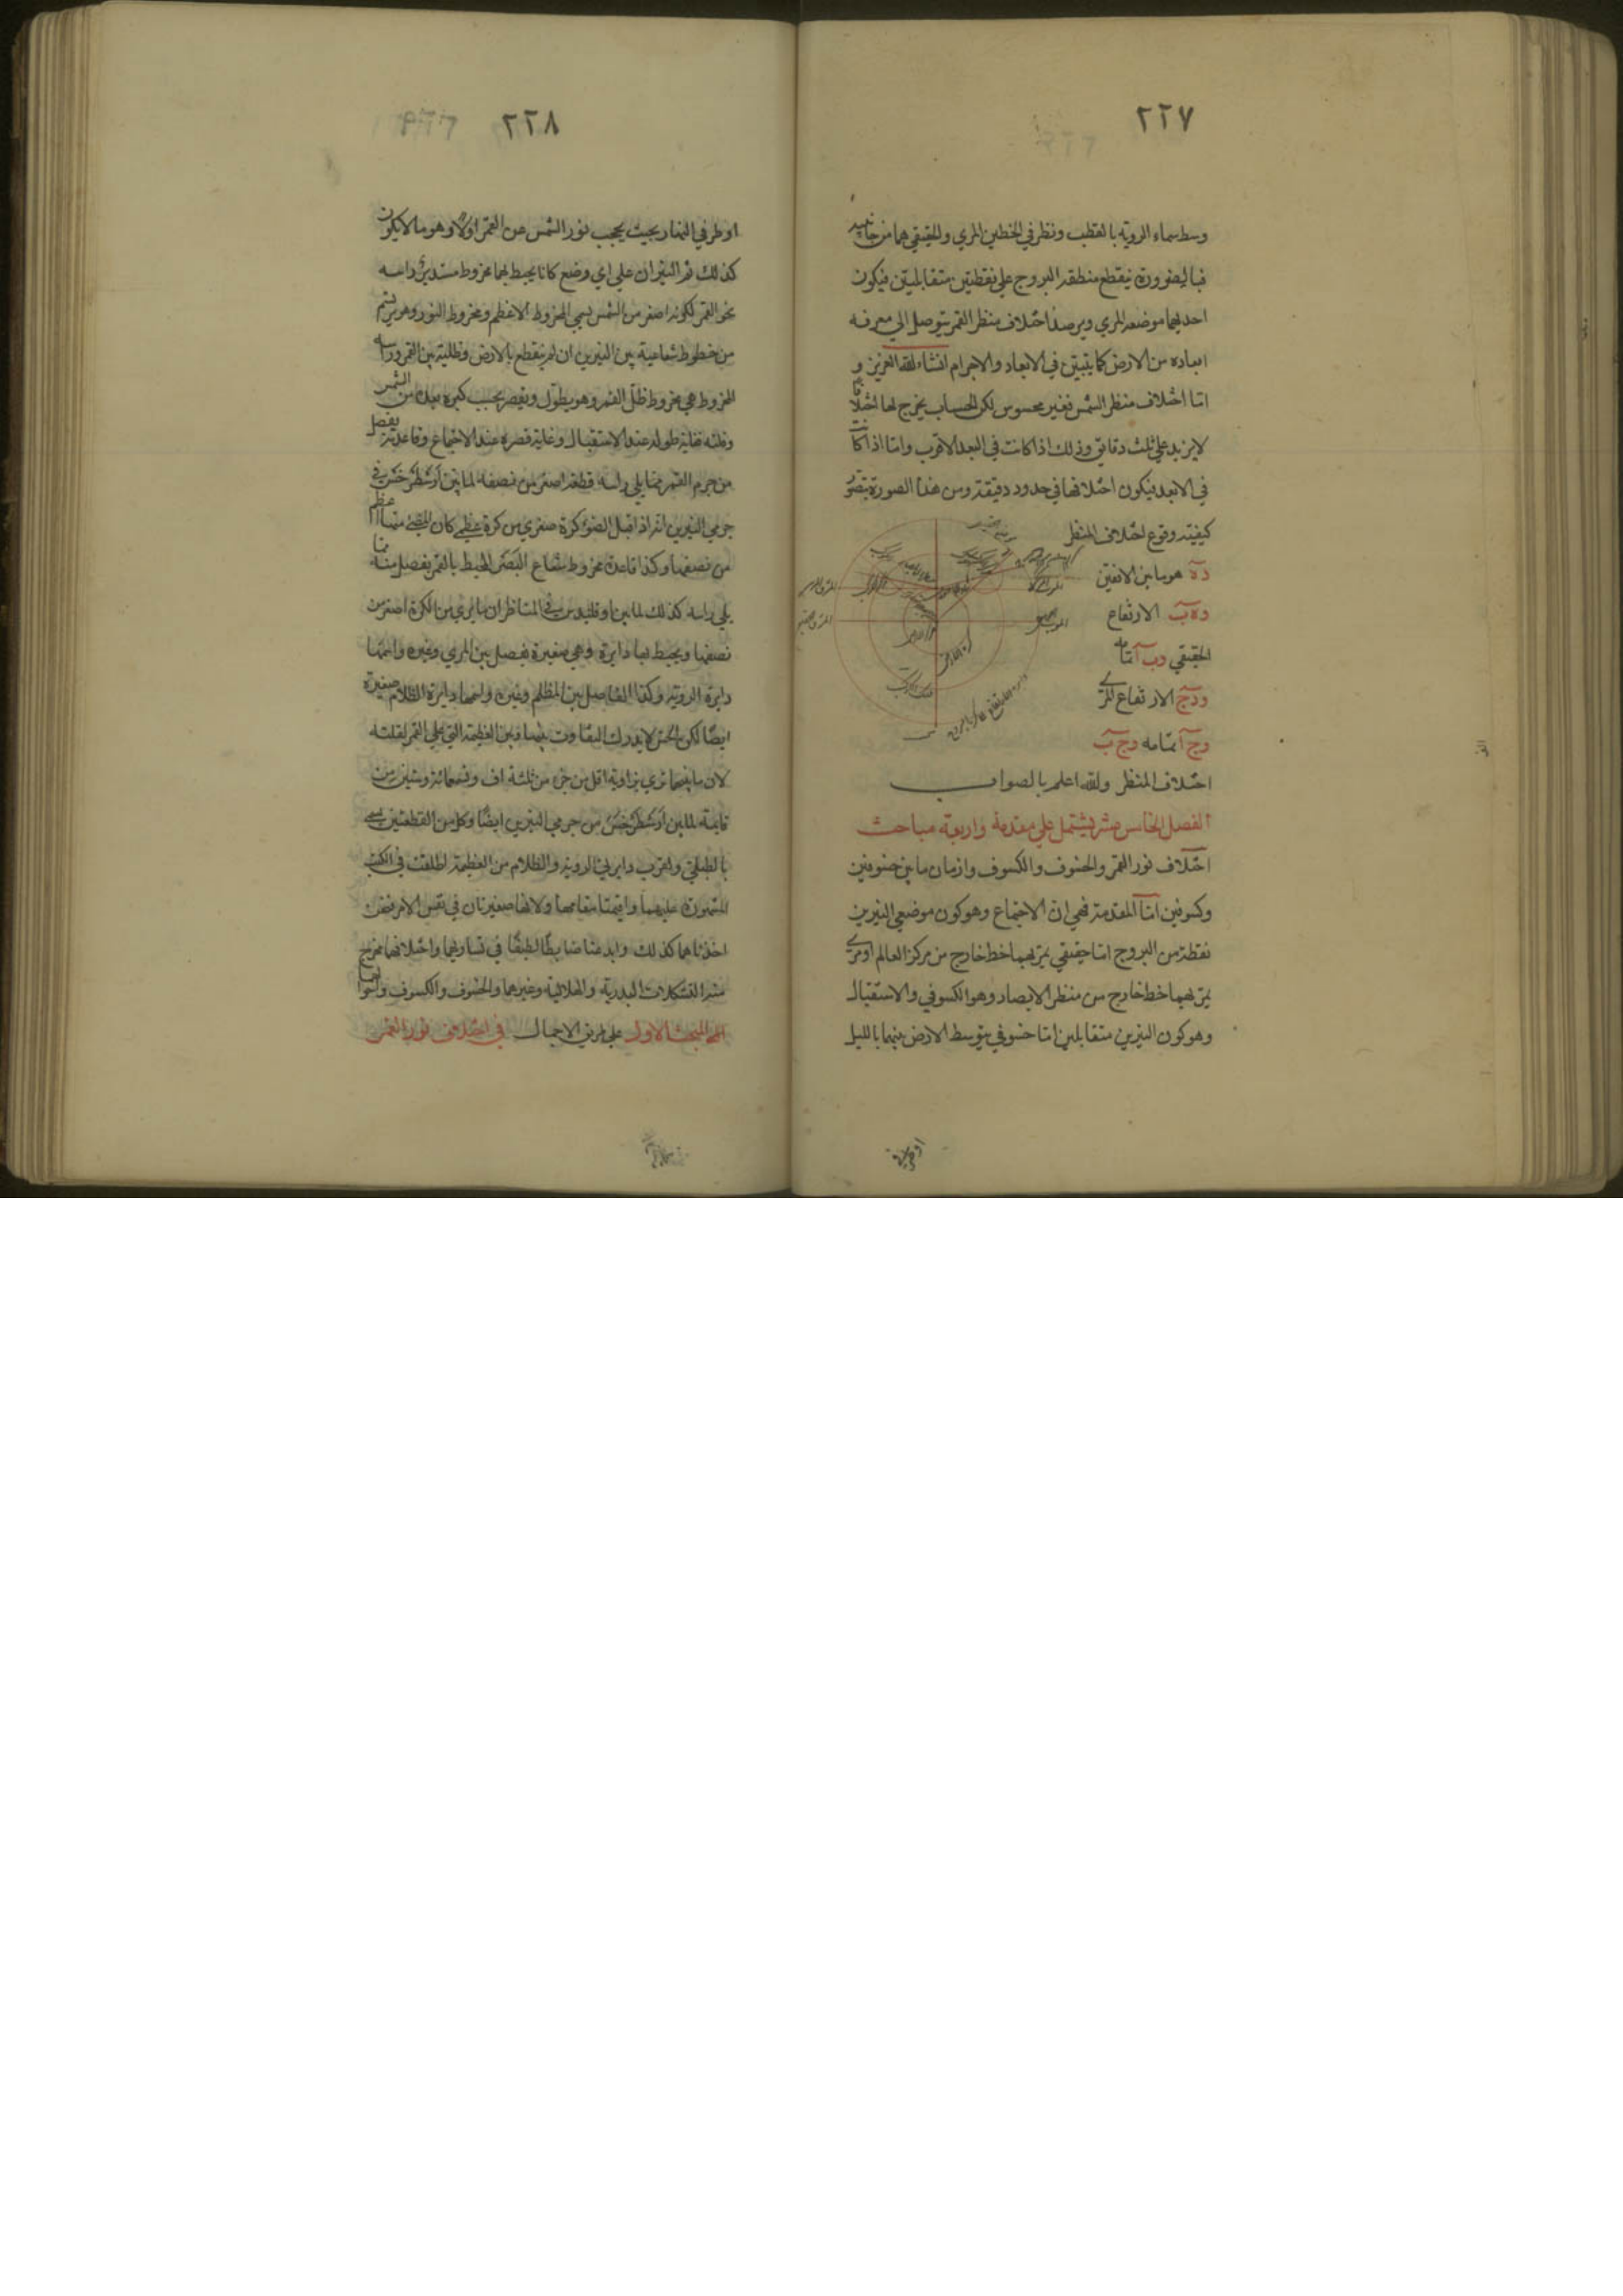 ٢٢٧
وسط سماء الروية بالقطب ونظر في الخطين المري والحقيقي هما من جانبيه
فبالضرورة ينقطع منطقة البروج علي نقطتين متقابلتين فيكون
احديهما موضعه المري وبرصد اختلاف منظر القمر يتوصل الي معرفة
ابعاده من الارض كما يتبين في الابعاد والاجرام انشاء الله العزيز و
اما اختلاف منظر الشمس فغير محسوس لكن الحساب يخرج لها اختلافا
لا يزيد علي ثلث دقايق وذلك اذا كانت في البعد الاقرب واما اذا كانت
في الابعد فيكون اختلافها في حدود دقيقة ومن هذا الصورة يتصور
كيفية وقوع اختلاف المنظر
دة هو ما بين الافقين
وة ب الارتفاع
الحقيقي وب آ تمامه
ودج الارتفاع المري
وج آ تمامه وج ب
اختلاف المنظر والله اعلم بالصواب
الفصل الخامس عشر يشتمل علي مقدمة واربعة مباحث
اختلاف نور القمر والخسوف والكسوف وازمان ما بين خسوفين
وكسوفين اما المقدمة فهي ان الاجتماع وهو كون موضعي النيرين
نقطة من البروج اما حقيقي يمر بهما خط خارج من مركز العالم او مري
يمر بهما خط خارج من منظر الابصار وهو الكسوفي والاستقبال
وهو كون النيرين متقابلين اما خسوفي بتوسط الارض بينهما بالليل
او طرفي
٢٢٨
او طرفي النهار بحيث يحجب نور الشمس عن القمر اولا وهو ما لا يكون
كذلك ثم النيران علي اي وضع كانا يحيط بهما مخروط مستدير راسه
نحو القمر لكونه اصغر من الشمس يسمي المخروط الاعظم ومخروط النور وهو يرتسم
من خطوط شعاعية بين النيرين ان لم ينقطع بالارض وظلية بين القمر وراس
المخروط هي مخروط ظل القمر وهو يطول ويقصر بحسب كثرة بعده من الشمس
وقلته فغاية طوله عند الاستقبال وغاية قصره عند الاجتماع وقاعدته تفصل
من جرم القمر مما يلي راسه قطعة اصغر من نصفه لما بين ارسطرخس في
جرمي النيرين انه اذا اقبل الضوء كرة صغري من كرة عظمي كان المضئ منها اعظم
من نصفها وكذا قاعدة مخروط شعاع البصر المحيط بالقمر يفصل منه مما
يلي راسه كذلك لما بين اوقليدس في المناظر ان ما يري من الكرة اصغر من
نصفها ويحيط بها دايرة وهي صغيرة يفصل بين المري وغيره واسمها
دايرة الروية وكذا الفاصل بين المظلم وغيره واسمها دايرة الظلام صغيرة
ايضا لكن الحس لا يدرك التفاوت بينها وبين العظيمة التي علي القمر لقلته
لان ما بينهما تري بزاوية اقل من جزء من ثلثة الف وتسعمائة وستين من
قايمة لما بين ارسطرخس من جرمي النيرين ايضا وكل من القطعتين يسمي
ولقرب دايرتي الروية والظلام من العظيمة اطلقت في الكتب
المشهورة عليهما واقيمتا مقامهما ولانها صغيرتان في نفس الامر نحن
اخذناهما كذلك وابدعنا ضابطا لطيفا في تساويهما واختلافهما يخرج
منه التشكلات البدرية والهلالية وغيرهما والخسوف والكسوف
المبحث الاول علي طريق الاجمال في اختلاف نور القمر